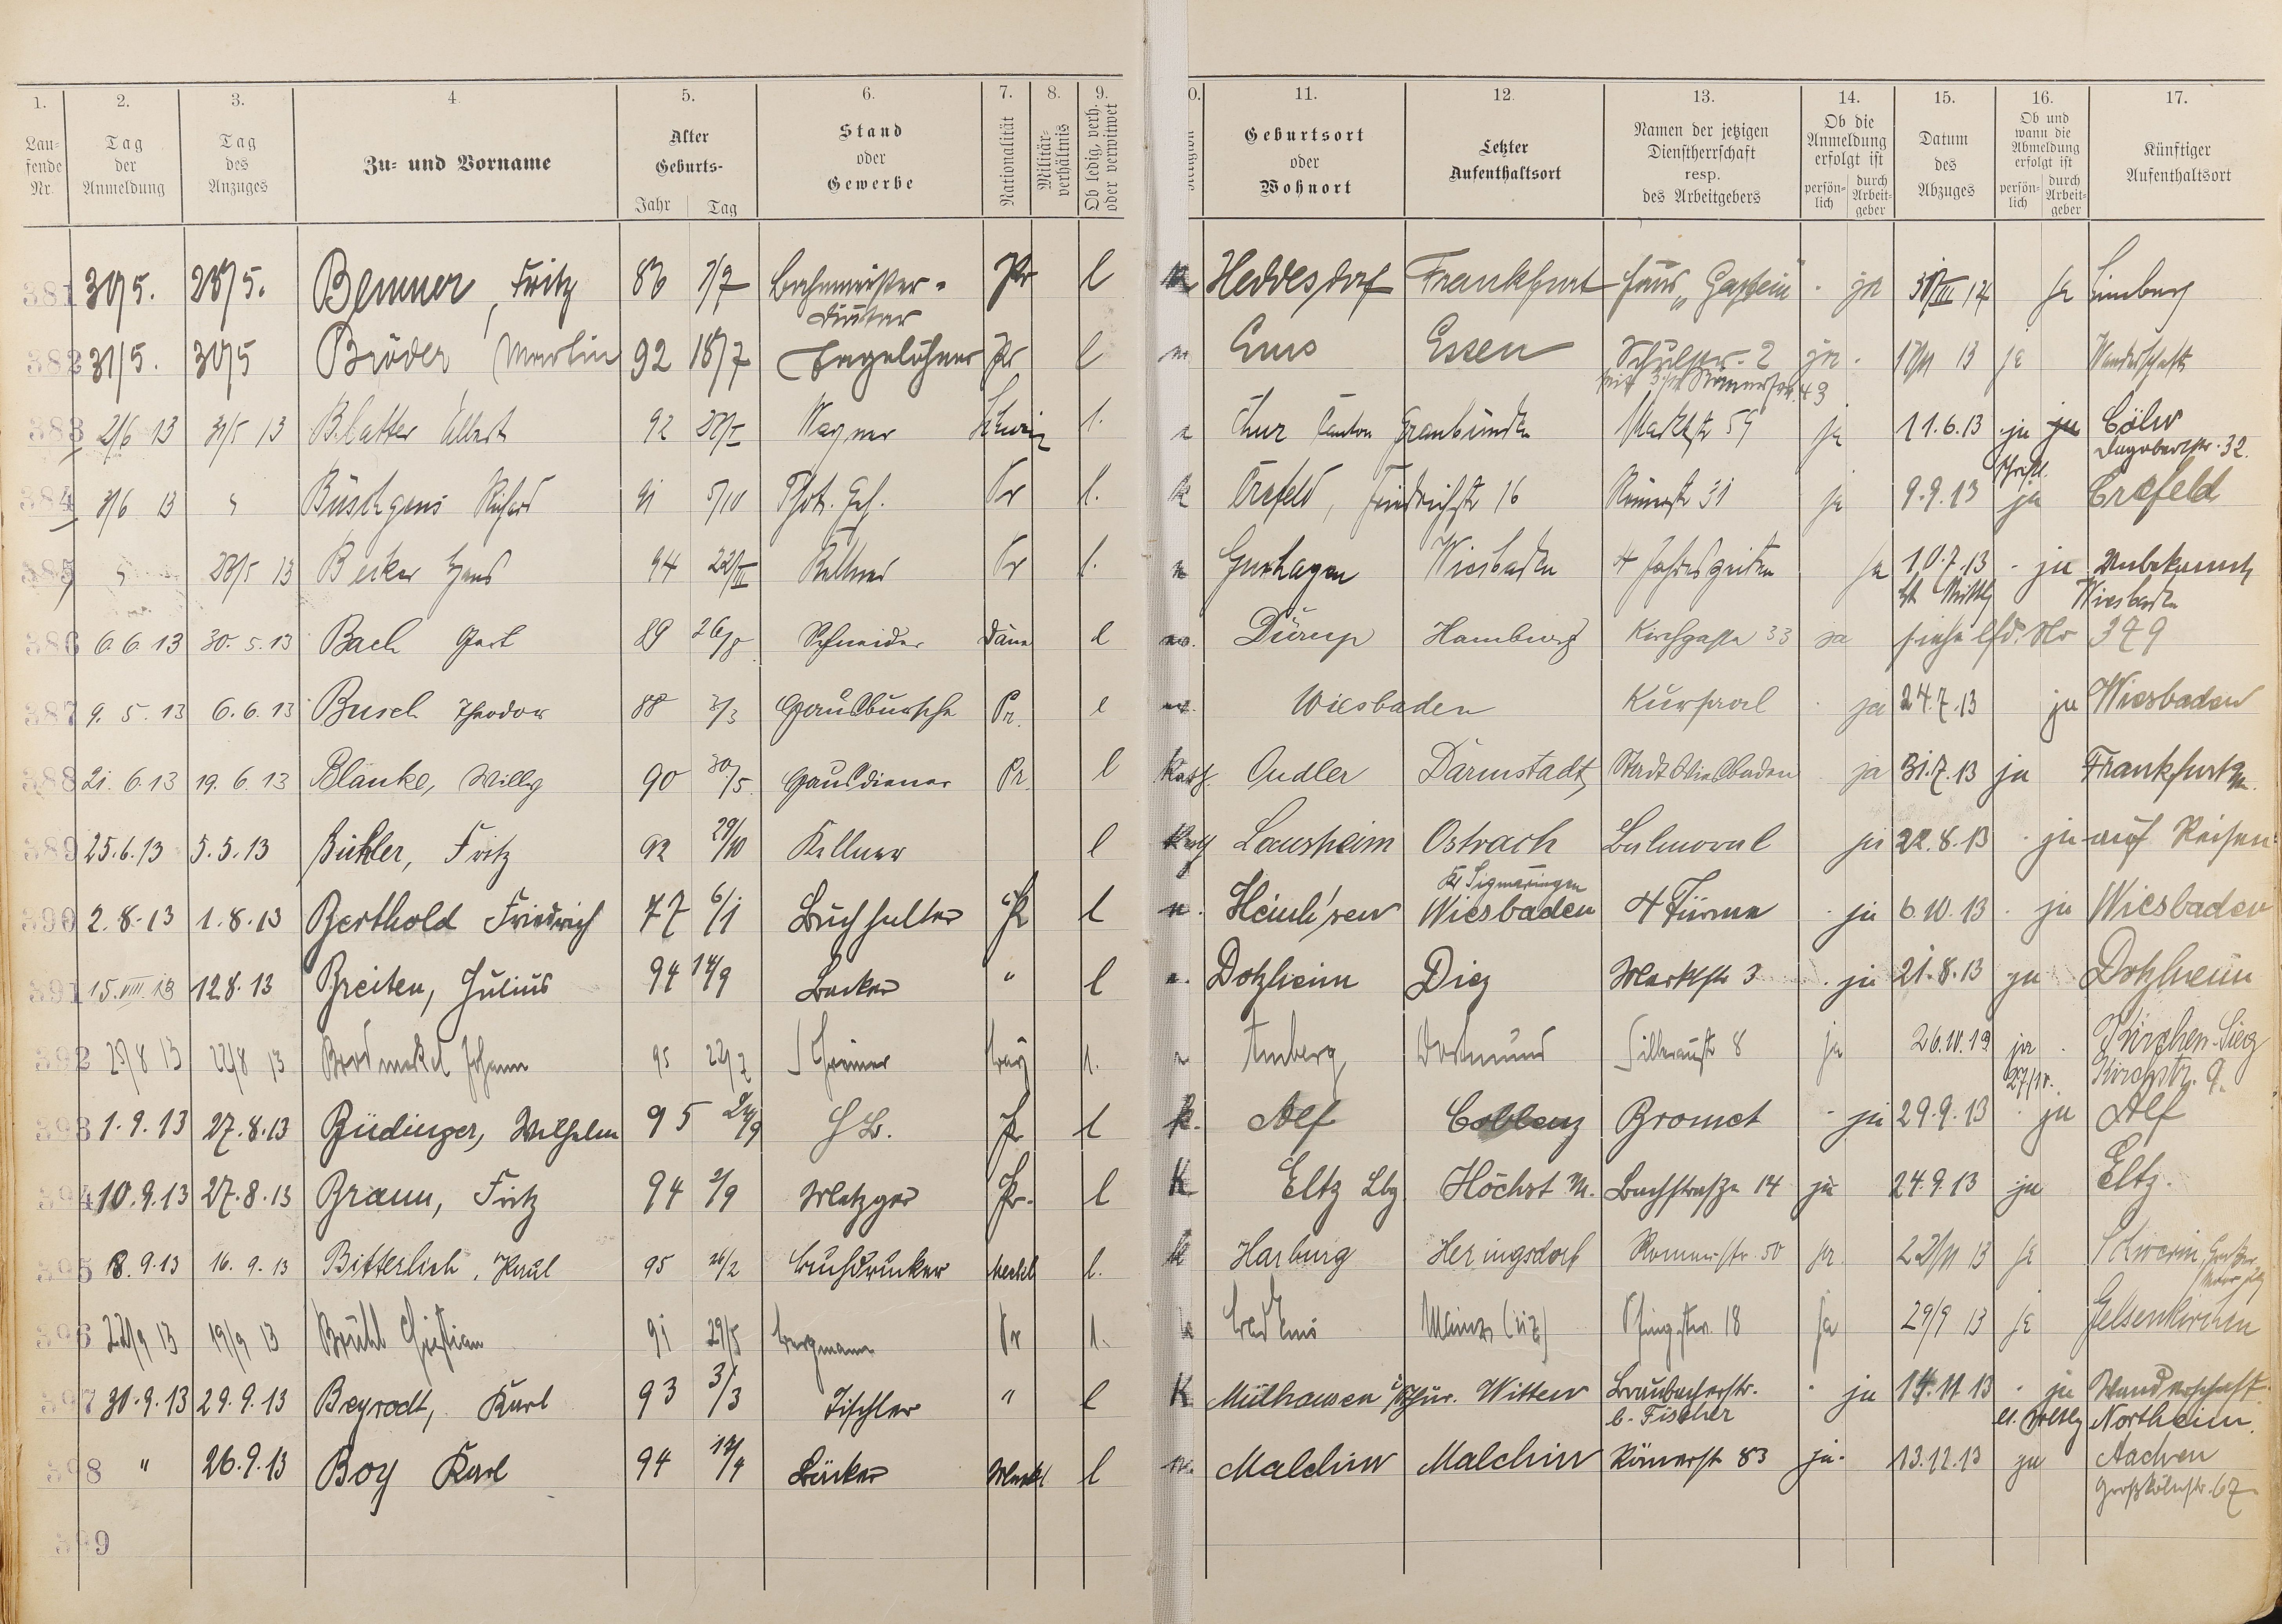 1. 2. 3. 4. 5. 6. 7. 8. 9. 11. 12. 13. 14. 15. 16. 17.
Laufende Nr. Tag der Anmeldung Tag des Anzuges Zu- und Vorname Alter Geburts- Jahr Tag Stand oder Gewerbe Nationalität Militärverhältnis Ob ledig, verh. oder verwitwet Geburtsort oder Wohnort Letzter Aufenthaltsort Namen der jetzigen Dienstherrschaft resp. des Arbeitgebers Ob die Anmeldung erfolgt ist persönlich durch Arbeitgeber Datum des Abzuges Ob und wann die Abmeldung erfolgt ist persönlich durch Arbeitgeber Künftiger Aufenthaltsort
381 30/5. 28/5. Benner, Fritz 86 7/7 Pr l Heddesdorf Frankfurt Haus „Gastein" - ja ja Limburg
382 31/5. 30/5 Bröder Martin 92 18/7 Tagelöhner Pr l Ems Essen Schulstr. 2 ja - 13 ja Wanderschaft
383 2/6 13 31/5 13 Blatter Albert 92 Wagner Schweiz l. Chur Canton Graubünden Marktstr 59 ja 11.6.13 ja ja Cöln
Dagobertstr. 32.
384 3/6 13 " Büschgens Richard 91 5/10 Phot. Geh. Pr l. k Crefeld, Friedrichstr 16 Römerstr 31 ja 9.9.13 schriftl. ja Crefeld
385 " 28/5 13 Becker Hans 94 Kellner Pr l. Wiesbaden 4 Jahreszeiten ja 10.7.13 - ja Unbekannt
Wiesbaden
386 6.6.13 30.5.13 Bach Gert 89 26/8 Schneider Däne l Dürup Hamburg Kirchgasse 33 ja siehe lfd. Nr 379
387 9.5.13 6.6.13 Busch Theodor 88 3/3 Hausbursche Pr. l Wiesbaden Kursaal - ja 24.7.13 ja Wiesbaden
388 21.6.13 19.6.13 Blanke, Willy 90 30/5 Hausdiener Pr. l Kath. Oudler Darmstadt Stadt Wiesbaden ja 31.7.13 ja Frankfurt M.
389 25.6.13 5.5.13 Bühler, Fritz 92 29/10 Kellner l Kath Lausheim Ostrach Balmoral ja 22.8.13 - ja auf Reisen
Kr Sigmaringen
390 2.8.13 1.8.13 Berthold Friedrich 77 6/1 Buchhalter Pr l Wiesbaden 4 Türme - ja 6.10.13 - ja Wiesbaden
391 15.VIII.13 12.8.13 Breiten, Julius 94 14/9 Bäcker " l Dotzheim Diez Marktstr 3 - ja 21.8.13 ja Dotzheim
392 23/8 13 22/8 13 Johann 95 22/7 Schreiner Bay l. Amberg Dortmund Silberaustr 8 ja 26.10.13 ja - Kirchen-Sieg
27/10. Kirchstr. 9.
393 1.9.13 27.8.13 Büdinger, Wilhelm 95 24/9 H B. Pr l k. Alf Coblenz Bromet - ja 29.9.13 - ja Alf
394 10.9.13 27.8.13 Braun, Fritz 94 2/9 Metzger Pr. l K Eltz Lbg Höchst M. Bachstraße 14 ja 24.9.13 ja Eltz.
395 18.9.13 16.9.13 Bitterlich, Paul 95 26/2 Buchdrucker Meckl l. k Harburg Heringsdorf Römerstr. 50 ja 22/11 13 ja Schwerin
396 22/9 13 19/9 13 Brühl Christian 91 29/5 Bergmann Pr l. Bad Ems Mainz Pfingstw. 18 ja 29/9 13 ja Gelsenkirchen
397 30.9.13 29.9.13 Beyrodt, Karl 93 3/3 Tischler " l K Mülhausen i/Thür. Witten Braubacherstr. - ja 14.11.13 - ja Wanderschaft.
b. Fischer Northeim.
398 " 26.9.13 Boy Karl 94 Bäcker Meckl l Malchin Malchin Römerstr 83 ja - 13.12.13 ja Aachen
Großkölnstr. 67
399